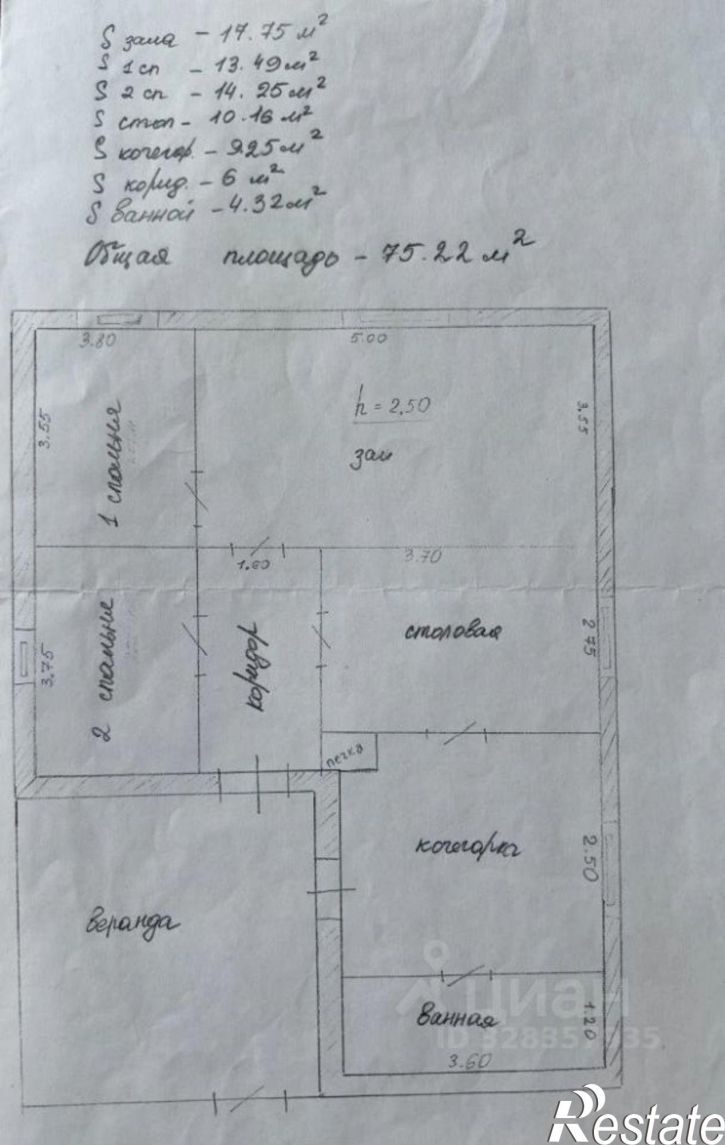 S зала - 17.75 м²
S 1 сп - 13.49 м²
S 2 сп - 14.25 м²
S стол - 10.16 м²
S кочегар. - 9.25 м²
S корид. - 6 м²
S ванной - 4.32 м²
Общая площадь - 75.22 м²
3.80
5.00
3.55
1 спальня
h = 2,50
зал
3.55
1.60
3.70
3.75
2 спальня
коридор
столовая
2.75
печка
кочегарка
2.50
веранда
ванная
1.20
3.60
циан
Restate